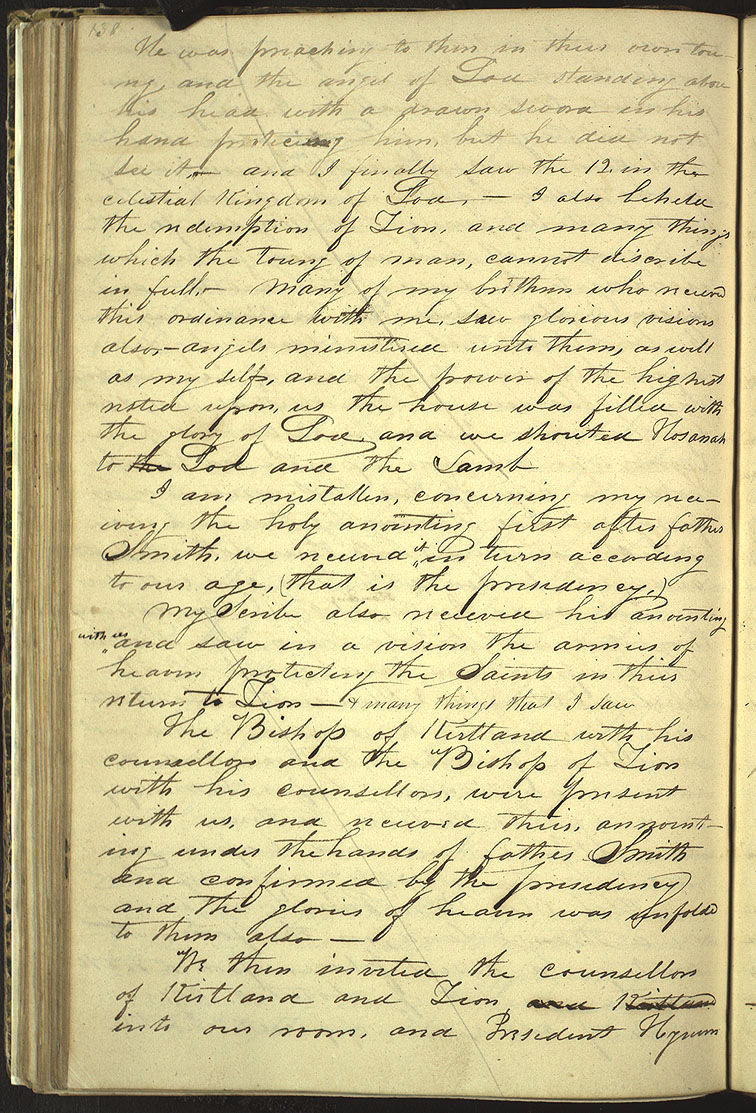 138
He was preaching to them in their own tou-
ng, and the angel of God standing above
his head with a drawn sword in his
hand protecting him, but he did not
see it,— and I finally saw the 12. in the
celestial Kingdom of God,— I also beheld
the redemption of Zion, and many things
which the toung of man, cannot discribe
in full,— Many of my brethren who received
this ordinance with me, saw glorious visions
also,— angels ministered unto them, as well
as my self, and the power of the highest
rested upon, us the house was filled with
the glory of God, and we shouted Hosanah
to the God and the Lamb
I am mistaken, concerning my rec-
iving the holy anointing first after father
Smith, we received it in turn according
to our age, (that is the presidency,)
My Scribe also recieved his anointing
with us and saw in a vision the armies of
heaven protecting the Saints in their
return to Zion — & many things that I saw
The Bishop of Kirtland with his
counsellors and the Bishop of Zion
with his counsellors, were present
with us, and received their, annoint-
ing under the hands of father Smith
and confirmed by the presidency
and the glories of heaven was unfolded
to them also —
We then invited the counsellors
of Kirtland and Zion and Kirtland
into our room, and President Hyrum